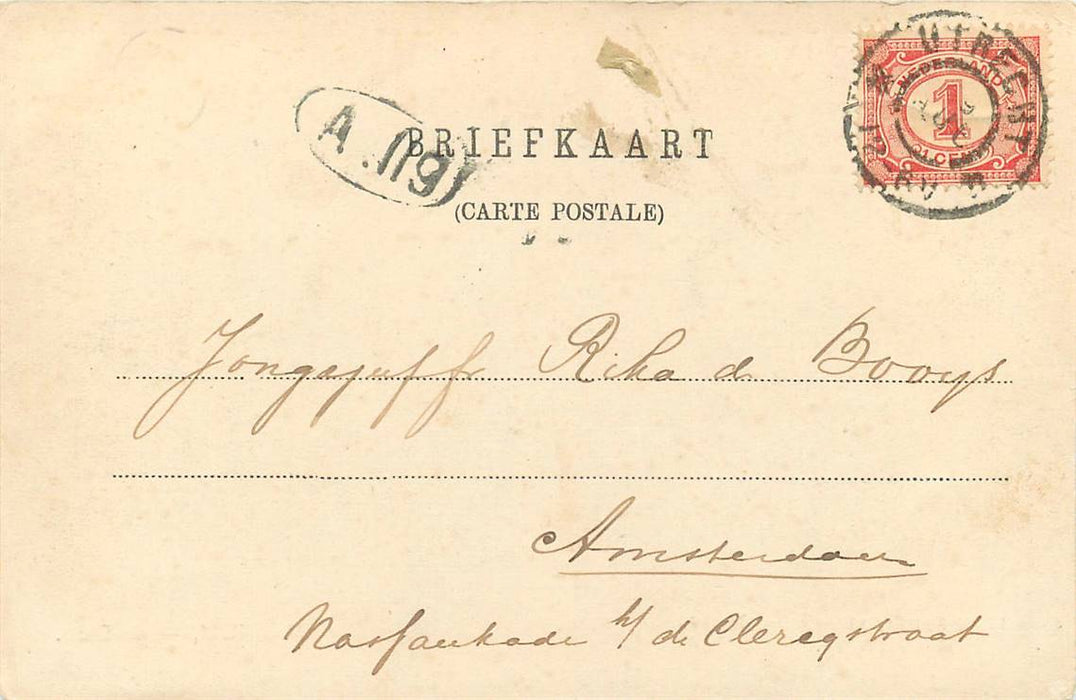 UTRECHT
NEDERLAND
1
CENT
A.119
BRIEFKAART
(CARTE POSTALE)
Jongejuffr Rika de Booys
Amsterdam
Nassaukade h/d de Clercqstraat